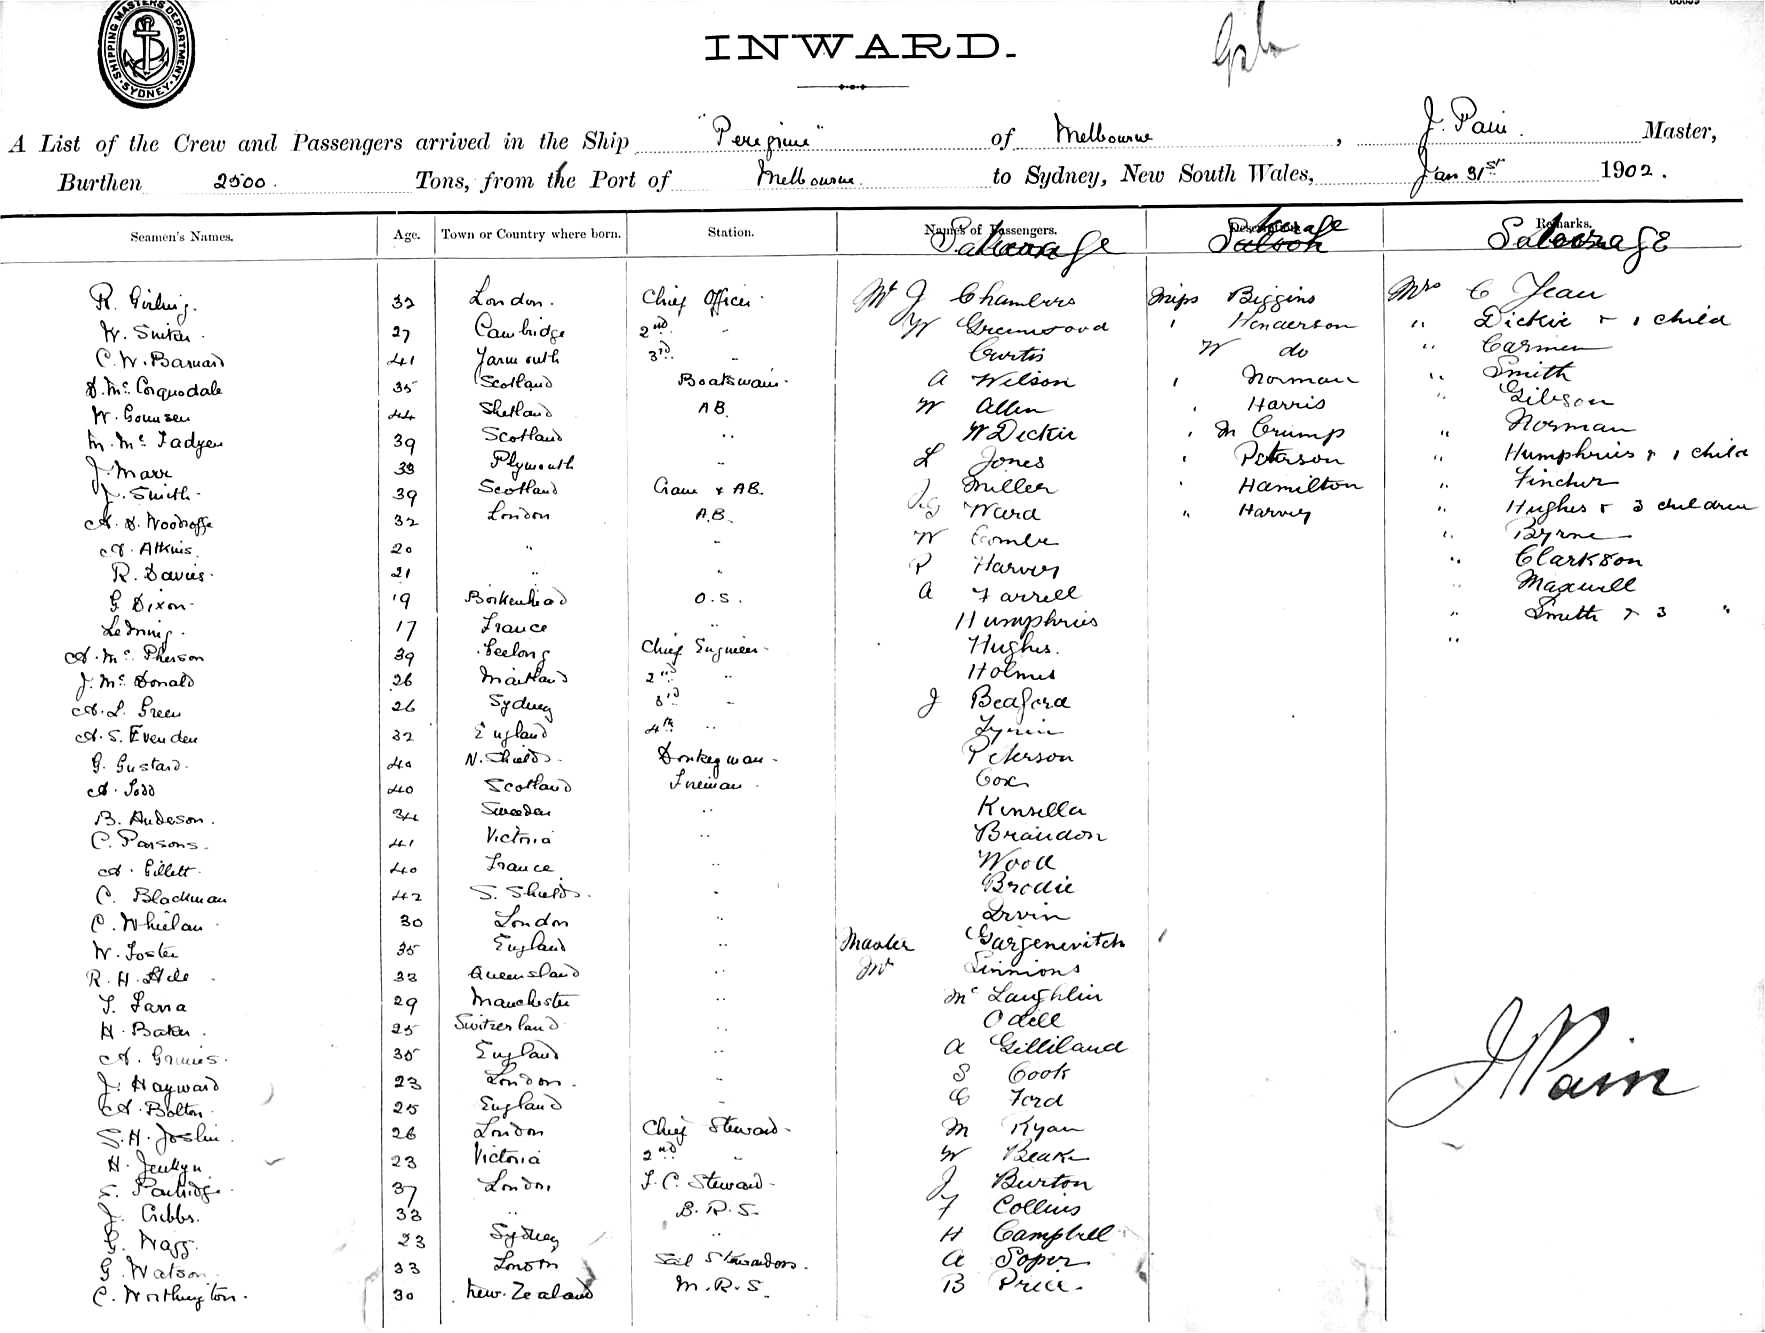 SHIPPING MASTERS DEPARTMENT. SYDNEY.
INWARD.
A List of the Crew and Passengers arrived in the Ship "Peregrine" of Melbourne, J. Pain. Master,
Burthen 2500. Tons, from the Port of Melbourne. to Sydney, New South Wales, Jan 31st 1902.
Seamen's Names. Age. Town or Country where born. Station. Names of Passengers. Remarks.
Steerage Steerage Steerage
R. Girling. 32 London. Chief Officer. Mr J Chambers Miss Biggins Mrs C Jean
W. 27 Cambridge 2nd " W Greenwood " Henderson " Dickie & 1 child
C. W. Barnard 41 Yarmouth 3rd " Curtis W do " Carmen
D. Mc Corquodale 35 Scotland Boatswain. A Wilson " Norman " Smith
W. 44 Shetland AB. W Allen " Harris " Gibson
M. Mc Fadyen 39 Scotland " W Dickie " M Crump " Norman
J. Marr 38 Plymouth " L Jones " Peterson " Humphries & 1 child
J. Smith. 39 Scotland & AB. J Miller " Hamilton " Fincher
A. D. Woodroffe 32 London A.B. G Ward " Harvey " Hughes & 3 children
A. Atkins. 20 " " W Combe " Byrne
R. Davies. 21 " " P Harvey " Clarkson
G. Dixon. 19 Birkenhead O.S. A Farrell " Maxwell
17 France " Humphries " Smith & 3 "
A. Mc Pherson 39 Geelong Chief Engineer. Hughes. "
J. Mc Donald 26 Maitland 2nd " Holmes
A. L. Green 26 Sydney 3rd " J Beaford
A. S. Evenden 32 England 4th "
G. Gustard. 40 N. Shields. Donkeyman. Peterson
A. Todd 40 Scotland Fireman. Cox
B. Anderson. 34 Sweden " Kinsella
C. Parsons. 41 Victoria " Brandon
A. Gillett. 40 France " Wood
C. Blackman 42 S. Shields. " Brodie
C. Whelan 30 London " Irvin
W. Foster 35 England " Master Gargenevitch
R. H. 33 Queensland " Mr Simmons
T. Farra 29 Manchester " Mc Laughlin
H. Baker. 25 Switzerland " Odell
A. 35 England " A Gilliland
J. Hayward 23 London. " S Cook
A. Bolton. 25 England " C Ford
S. H. Joslin. 26 London Chief Steward. M Ryan
H. Jenkyn 23 Victoria 2nd " W Beake
S. Partridge. 37 London F. C. Steward. J Burton
J. Gibbs. 33 " B. R. S. F Collins
G. Wagg. 23 Sydney " H Campbell
G. Watson 33 London Stewardess. A Soper
C. Worthington. 30 New Zealand M.R.S. B Price.
J Pain